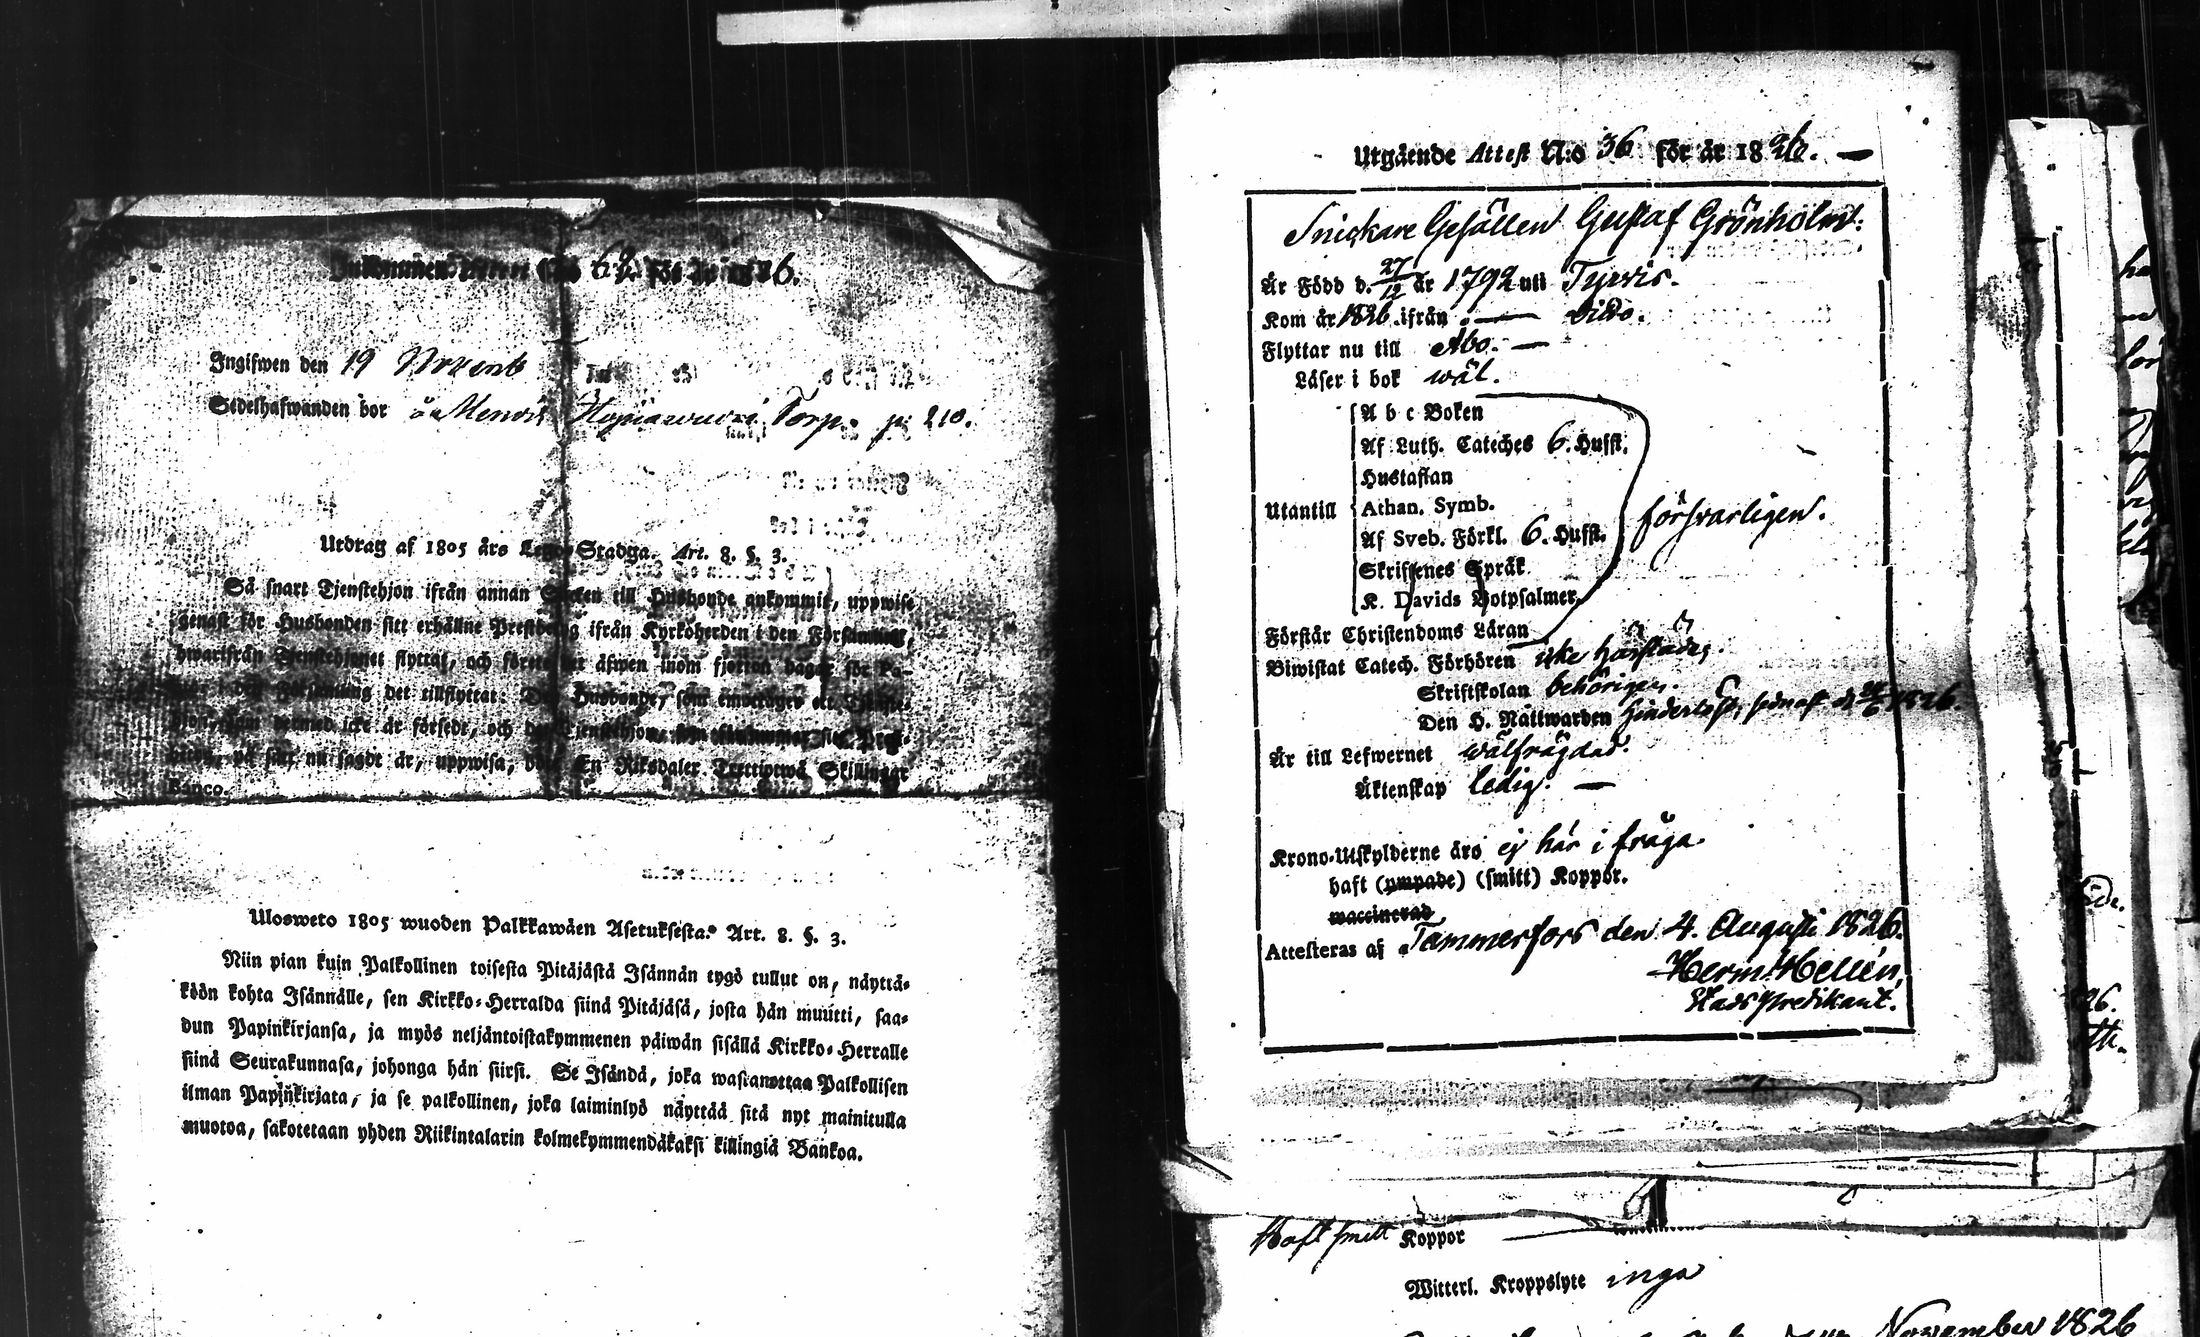 Inkommen Attest N:o 62. för år 1826.
Ingifwen den 19 Novemb
Sedelhafwanden bor Torp. p. 210.
Utdrag af 1805 års Lego-Stadga. Art. 8. §. 3.
Så snart Tjenstehjon ifrån annan Socken till Husbonde ankommit, uppwise
genast för Husbonden sitt erhållne Prestbetyg ifrån Kyrkoherden i den Församling,
hwarifrån Tjenstehjonet flyttat, och förete det äfwen inom fjorton dagar för Ky-
Församling det tillflyttat: Den Husbonde, som emottager ett Tjenste-
hjon, som dermed icke är försedt, och det Tjenstehjon, som försummar sitt Prest-
betyg, på sätt nu sagdt är, uppwisa, böte En Riksdaler Trettiotwå Skillingar
Banco.
Ulosweto 1805 wuoden Palkkawäen Asetuksesta. Art. 8. §. 3.
Niin pian kuin Palkollinen toisesta Pitäjästä Isännän tygö tullut on, näyttä-
köön kohta Isännälle, sen Kirkko-Herralda siinä Pitäjäsä, josta hän muutti, saa-
dun Papinkirjansa, ja myös neljäntoistakymmenen päiwän sisällä Kirkko-Herralle
siinä Seurakunnasa, johonga hän siirsi. Se Isändä, joka wastanottaa Palkollisen
ilman Papinkirjata, ja se palkollinen, joka laiminlyö näyttää sitä nyt mainitulla
muotoa, sakotetaan yhden Riikintalarin kolmekymmendäkaksi killingiä Bankoa.
Utgående Attest N:o 36 för år 1826. —
Snickare Gesällen Gustaf Grönholm.
Är Född d. 27/12 år 1792 uti Tyrvis.
Kom år 1826 ifrån — dito.
Flyttar nu till Åbo. —
Läser i bok wäl.
A b c Boken
Af Luth. Cateches 6. Hufst.
Hustaflan
Utantill Athan. Symb. försvarligen.
Af Sveb. Förkl. 6. Hufst.
Skriftenes Språk
K. Davids Botpsalmer
Förstår Christendoms Läran
Biwistat Catech. Förhören icke härstädes.
Skriftskolan behörigen.
Den H. Nattwarden hinderlöst, sednast d. 1826.
Är till Lefwernet wälfrägdad.
Äktenskap ledig. —
Krono-Utskylderne äro ej här i fråga.
haft (ympade) (smitt) Koppor.
waccinerad
Attesteras af Tammerfors den 4. Augusti 1826.
Herm. Hellén,
Stadspredikant.
Haft smitt Koppor
Witterl. Kroppslyte inga
November 1826